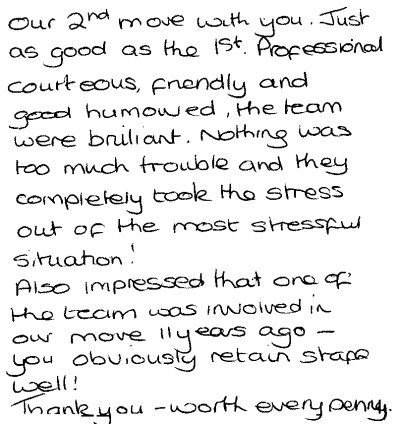 Our 2nd move with you. Just
as good as the 1st. Professional
courteous, friendly and
good humoured, the team
were brilliant. Nothing was
too much trouble and they
completely took the stress
out of the most stressful
situation!
Also impressed that one of
the team was involved in
our move 11 years ago –
you obviously retain staff
well!
Thank you – worth every penny.